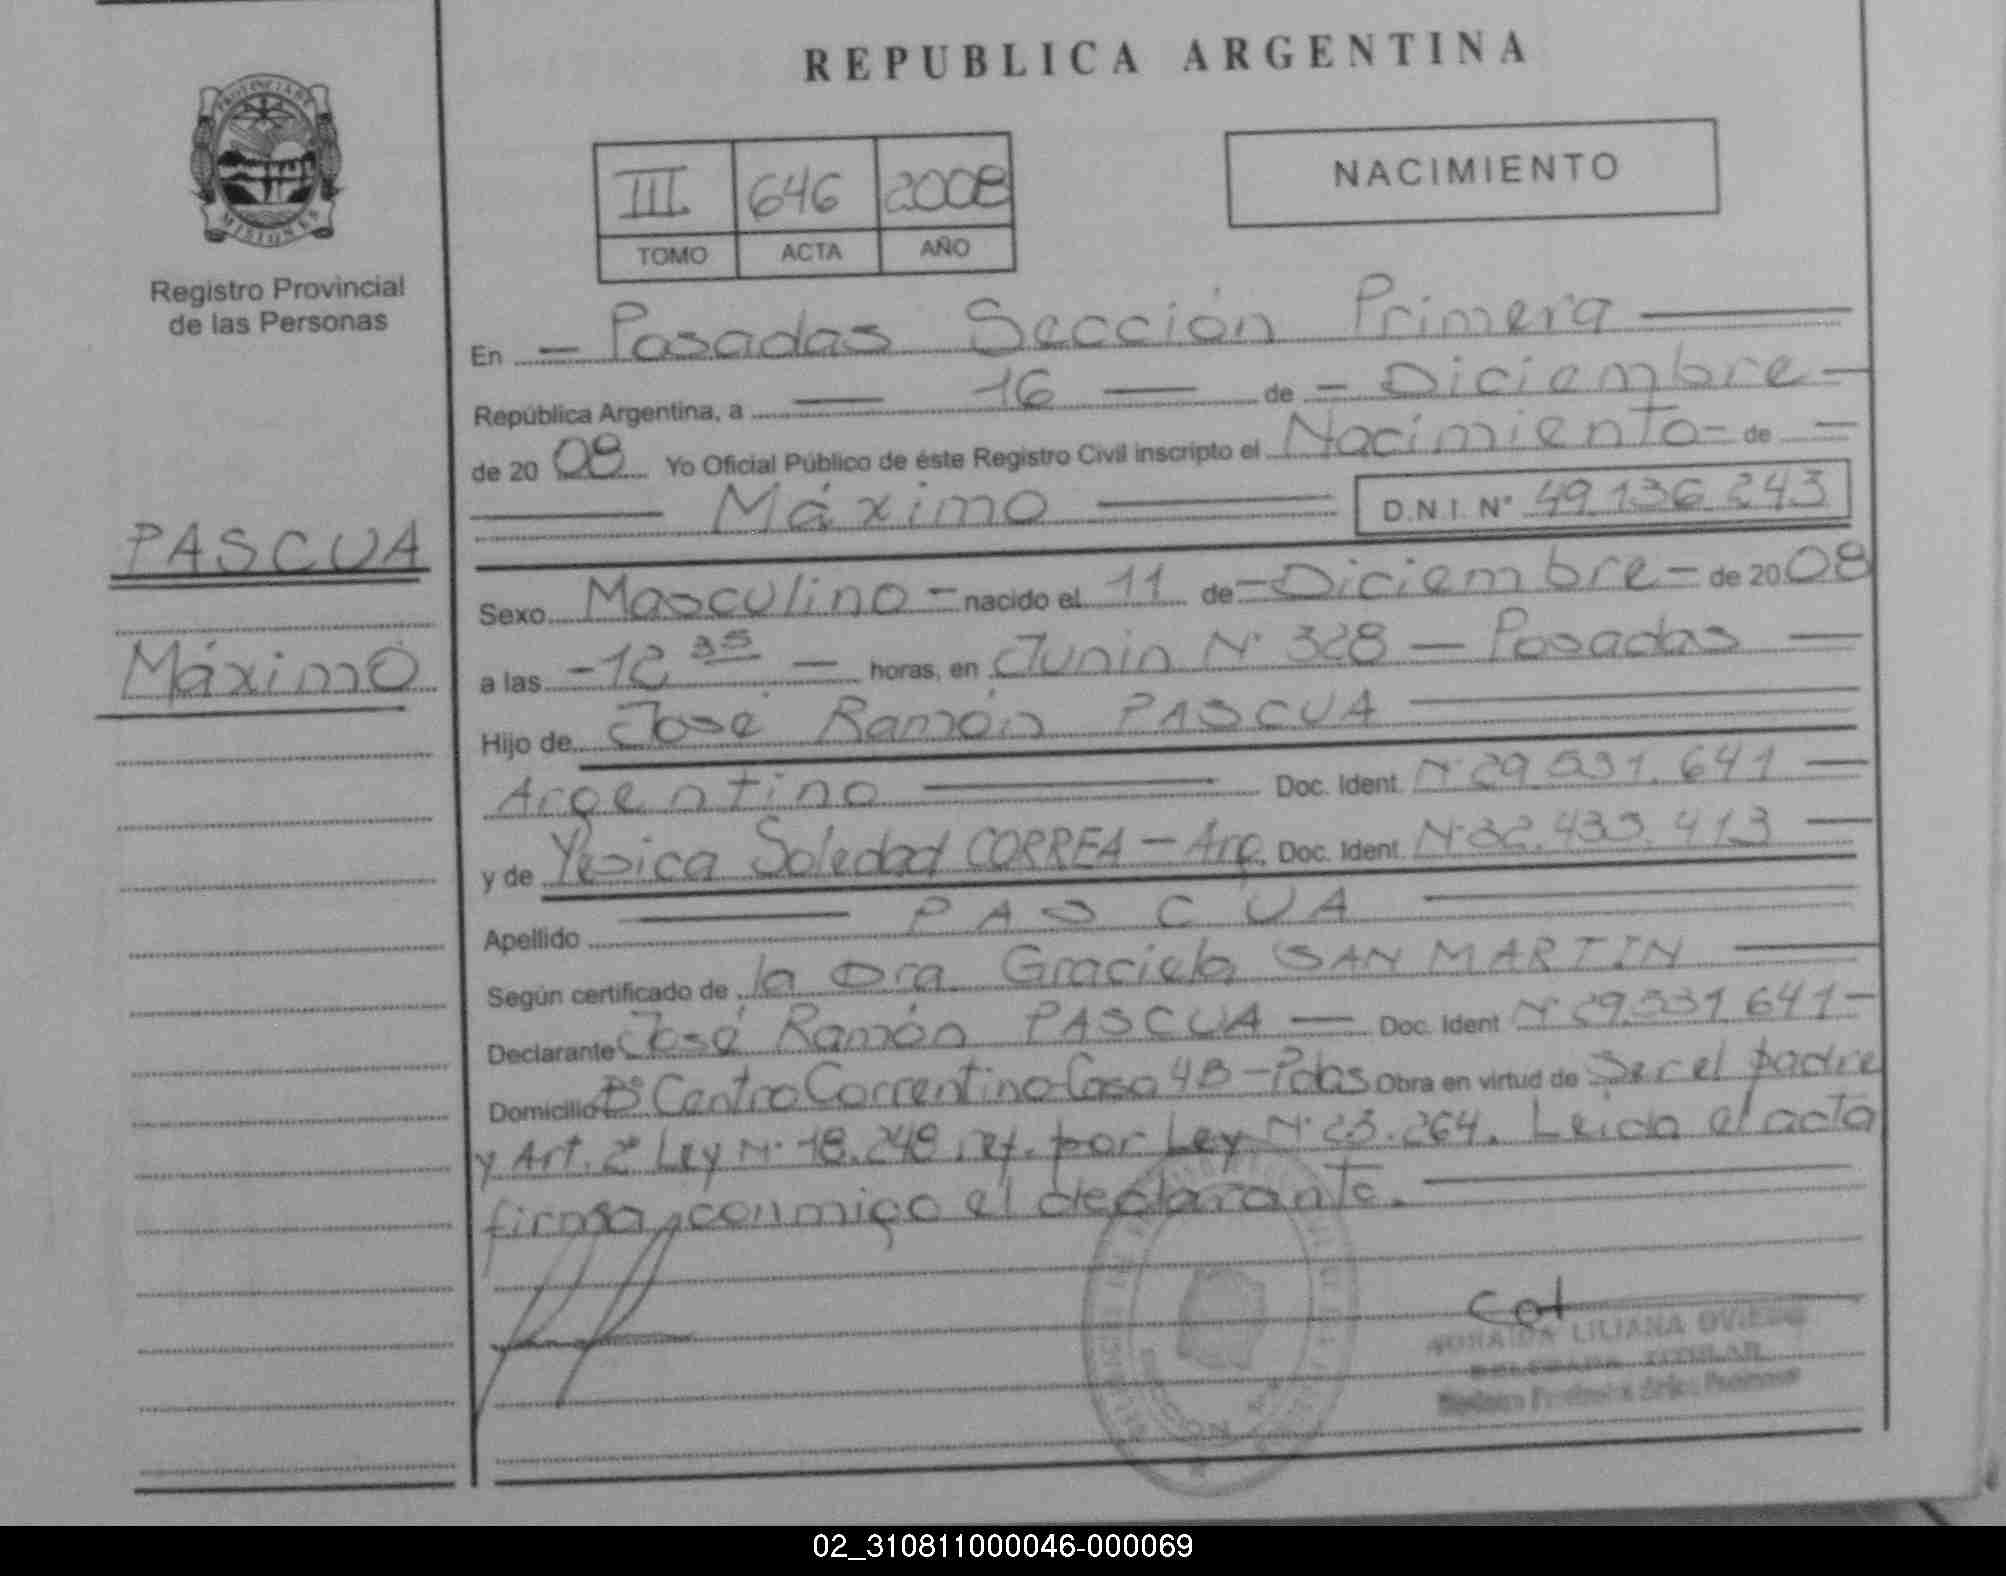 REPUBLICA ARGENTINA
PROVINCIA DE
MISIONES
Registro Provincial
de las Personas
III 646 2008
TOMO ACTA AÑO
NACIMIENTO
PASCUA
Máximo
En - Posadas Sección Primera
República Argentina, a 16 de - Diciembre -
de 20 08 Yo Oficial Público de éste Registro Civil inscripto el Nacimiento - de -
Máximo D.N.I. Nº 49.136.243
Sexo Masculino - nacido el 11 de - Diciembre - de 20 08
a las - 12 35 - horas, en Junin Nº 328 - Posadas
Hijo de José Ramón PASCUA
Argentino Doc. Ident. Nº 29.531.641
y de Yesica Soledad CORREA - Arg. Doc. Ident. Nº 32.435.413
Apellido PASCUA
Según certificado de la Dra. Graciela SAN MARTIN
Declarante José Ramón PASCUA - Doc. Ident Nº 29.531.641 -
Domicilio Bº Centro Correntino - Casa 4B - Pdas Obra en virtud de Ser el padre
y Art. 2º Ley Nº 18.248, ref. por Ley Nº 23.264. Leída el acta
firma conmigo el declarante.
LILIANA OVIEDO
TITULAR
02_310811000046-000069